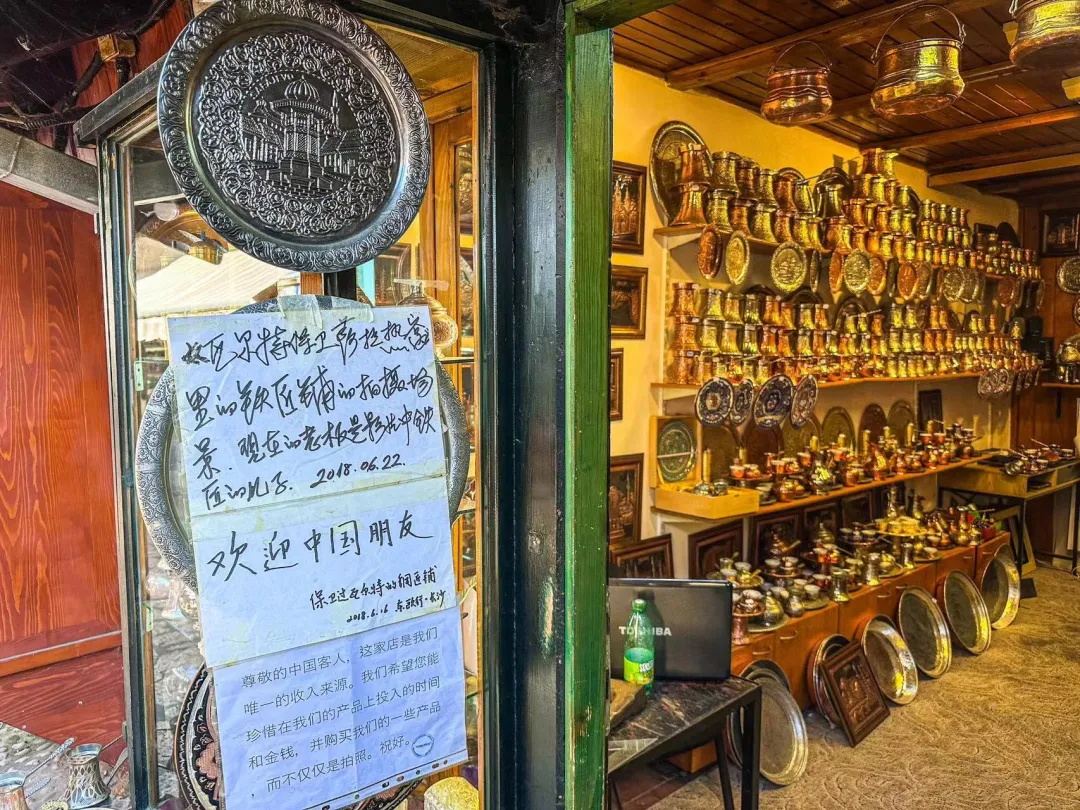 瓦尔特保卫萨拉热窝
里的铁匠铺的拍摄场
景.现在的老板是
匠的儿子. 2018.06.22.
欢迎中国朋友
保卫过瓦尔特的铜匠铺
2018.6.16 东欧行·长沙
尊敬的中国客人，这家店是我们
唯一的收入来源。我们希望您能
珍惜在我们的产品上投入的时间
和金钱，并购买我们的一些产品
，而不仅仅是拍照。祝好。
TOSHIBA